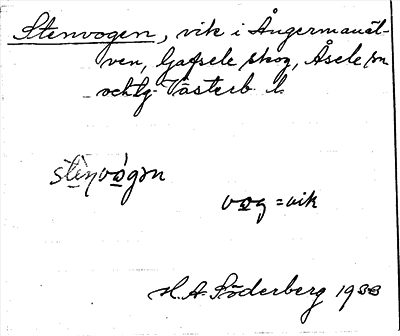 Stenvogen, vik i Ångermanäl-
ven, Gafsele skog, Åsele sn
och lg Västerb. l.
stènvǿgən
vøg = vik
H. A. Söderberg 1933